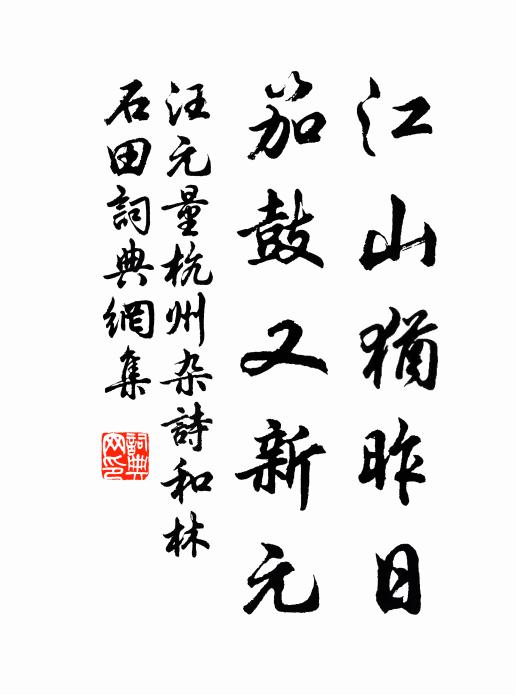 江山猶昨日
笳鼓又新元
汪元量杭州杂詩和林
石田詞典網集
詞典网印